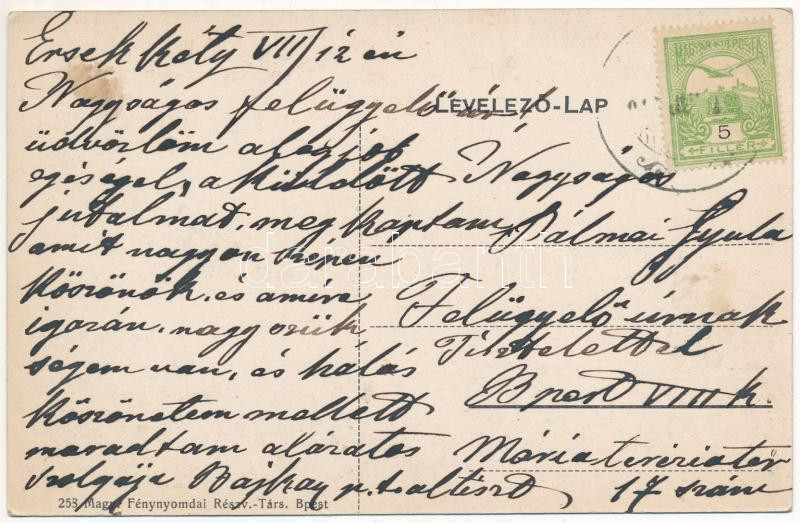 Ersek Kéty VII/12 én
Nagyságos felügyelő úr
üdvözlöm a legjob
egéségel, a kiküldött
jutalmat, meg kaptam
amit nagyon szepen
köszönök, és amire
igazán, nagy szük
ségem van, és hálás
köszönetem mellett
maradtam alázatos
szolgája Bajkay p. t. altiszt
LEVELEZŐ-LAP
Nagyságos
Pálmai Gyula
Felügyelő úrnak
Tisztelettel
Bpest VIII k.
Mária terézia tér
17 szám
MAGYAR KIR. POSTA
5
FILLÉR
258 Magyar Fénynyomdai Részv.-Társ. Bpest
darabanth